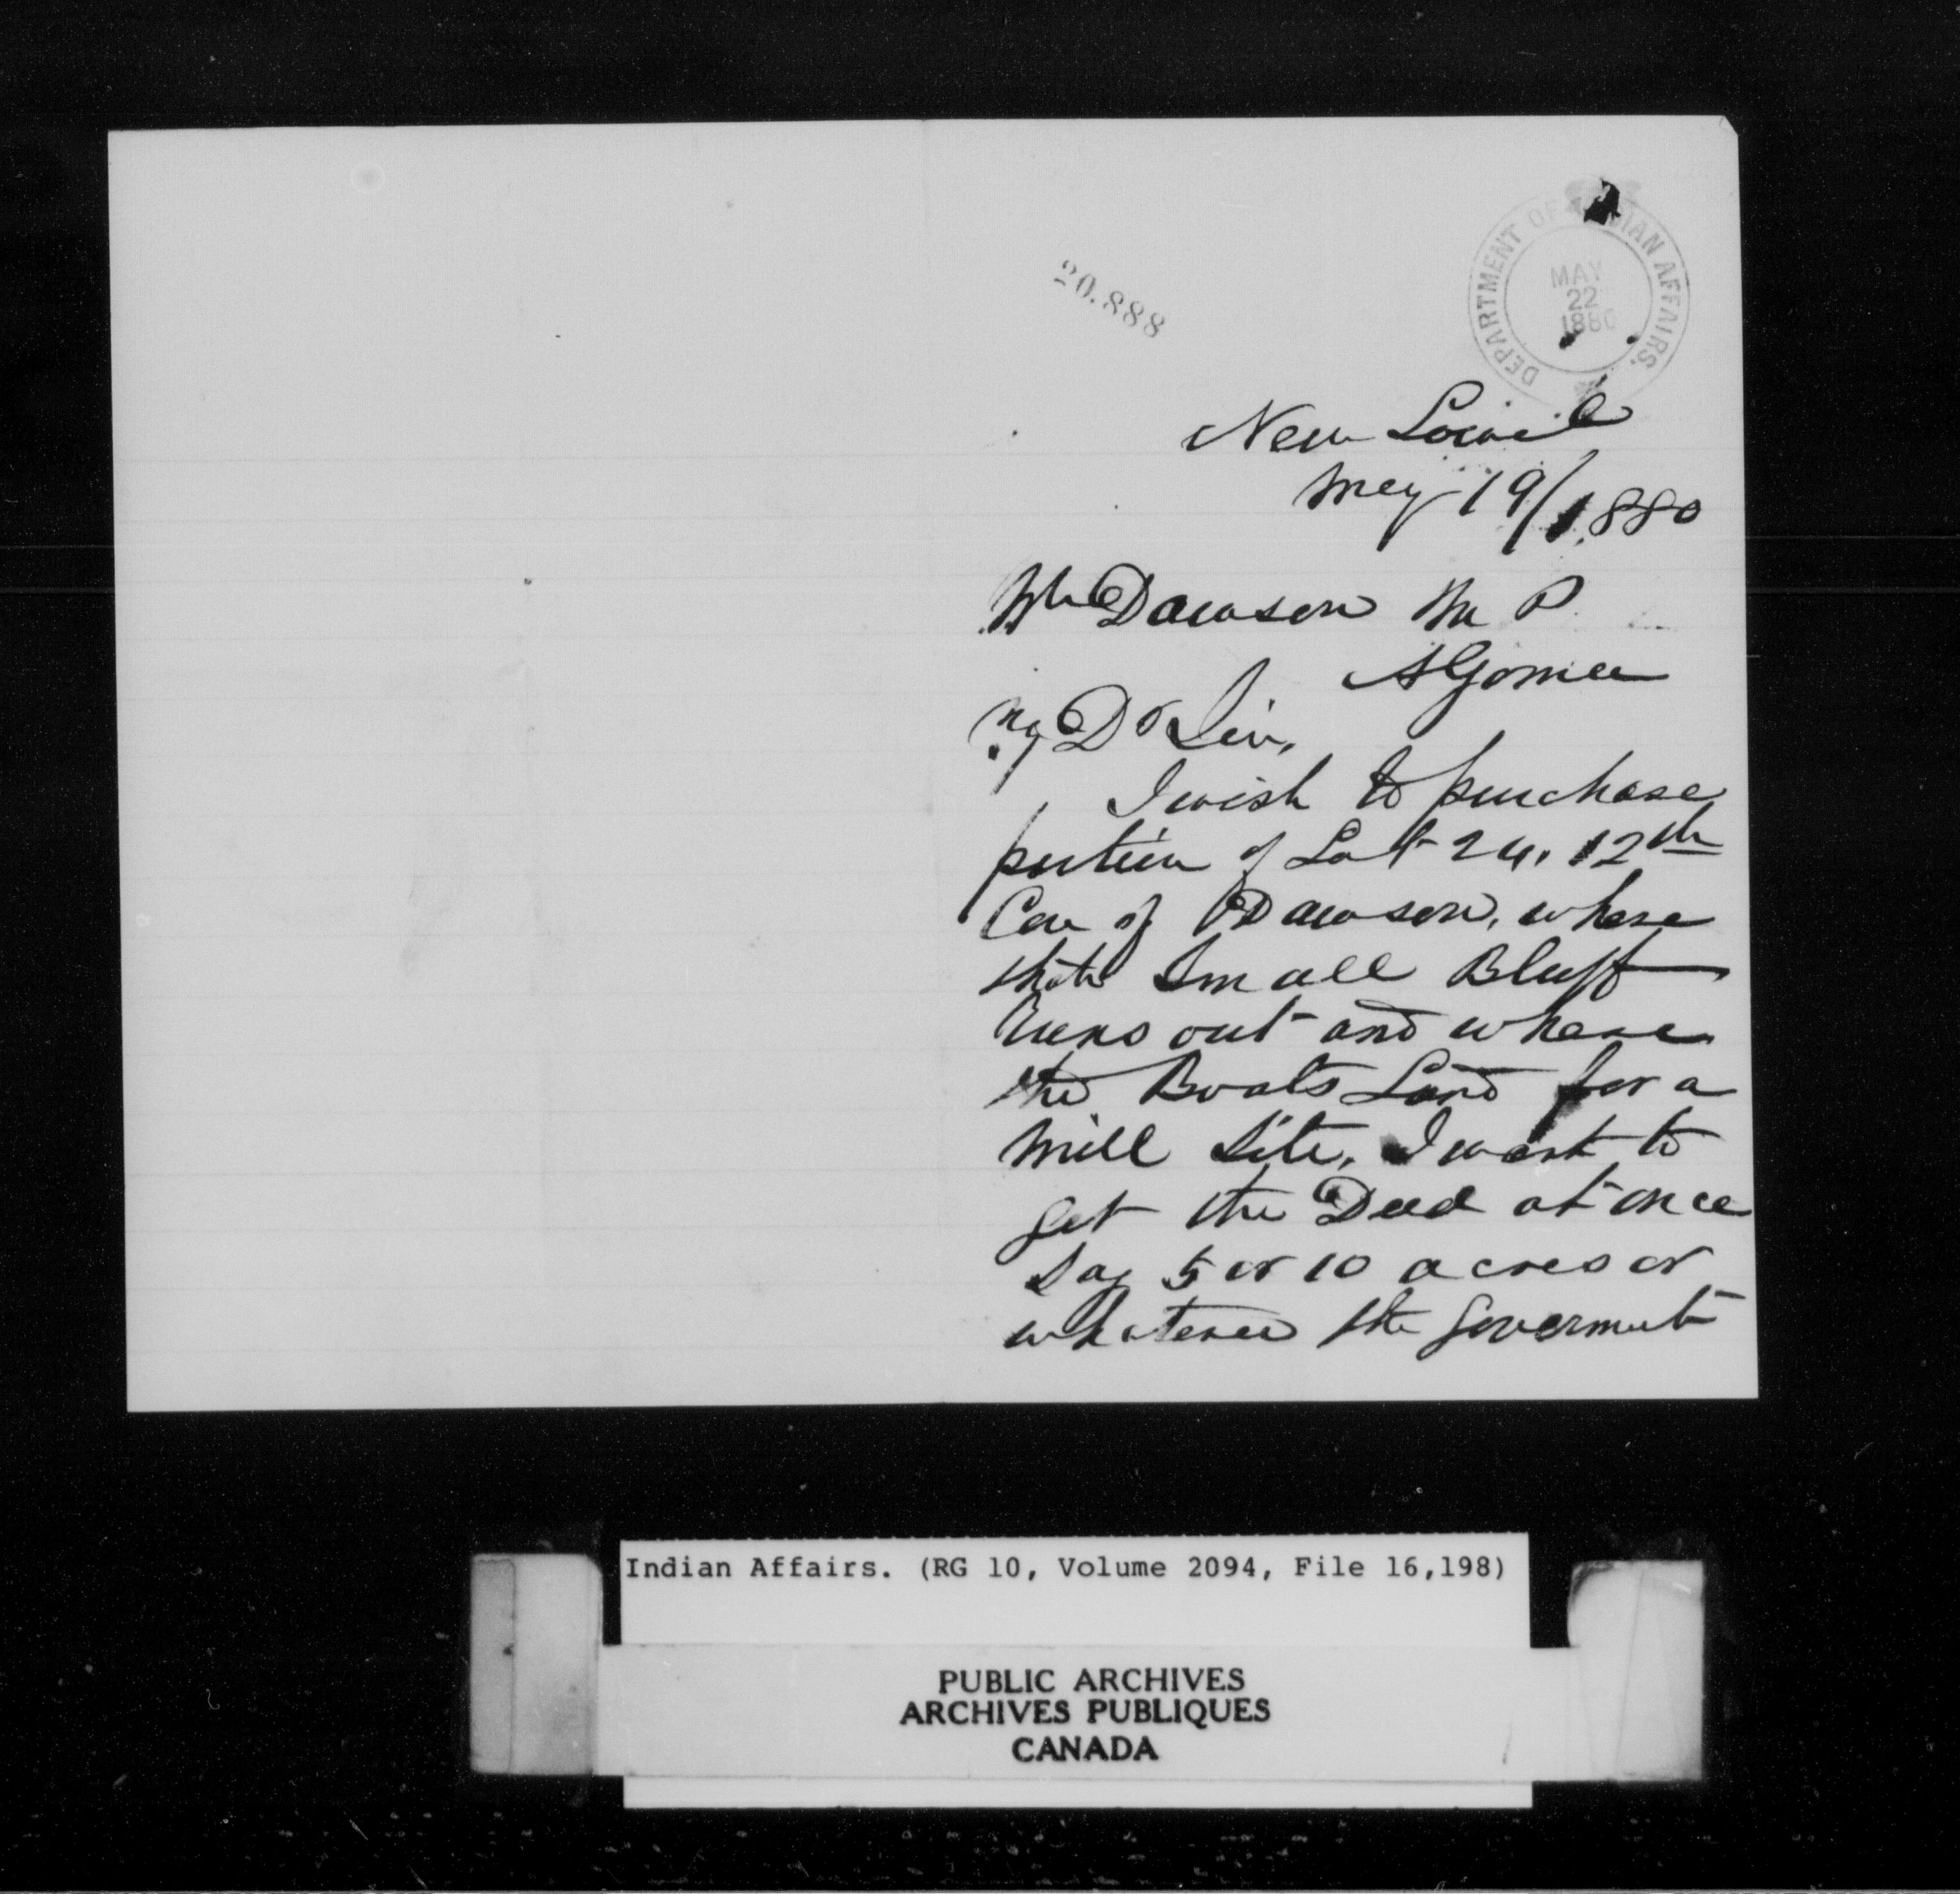 20.888
DEPARTMENT OF INDIAN AFFAIRS.
MAY
22
1880
New Lowell
May 19/1880
Mr Dawson M P
Algoma
My Dr Sir,
I wish to purchase
portion of Lot 24, 12th
Con of Dawson, where
that Small Bluff
Runs out and where
the Boats Land for a
Mill Site, I want to
get the Deed at once
Say 5 or 10 acres or
whatever the Goverment
Indian Affairs. (RG 10, Volume 2094, File 16,198)
PUBLIC ARCHIVES
ARCHIVES PUBLIQUES
CANADA